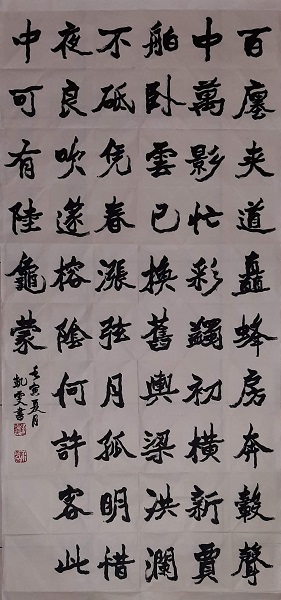 百廛夾道矗蜂房奔轂聲
中萬影忙彩鷁初橫新賈
舶臥雲已換舊輿梁洪瀾
不砥凭春漲弦月孤明惜
夜良吹篴榕陰何許客此
中可有陸龜蒙
壬寅夏月
凱雯書